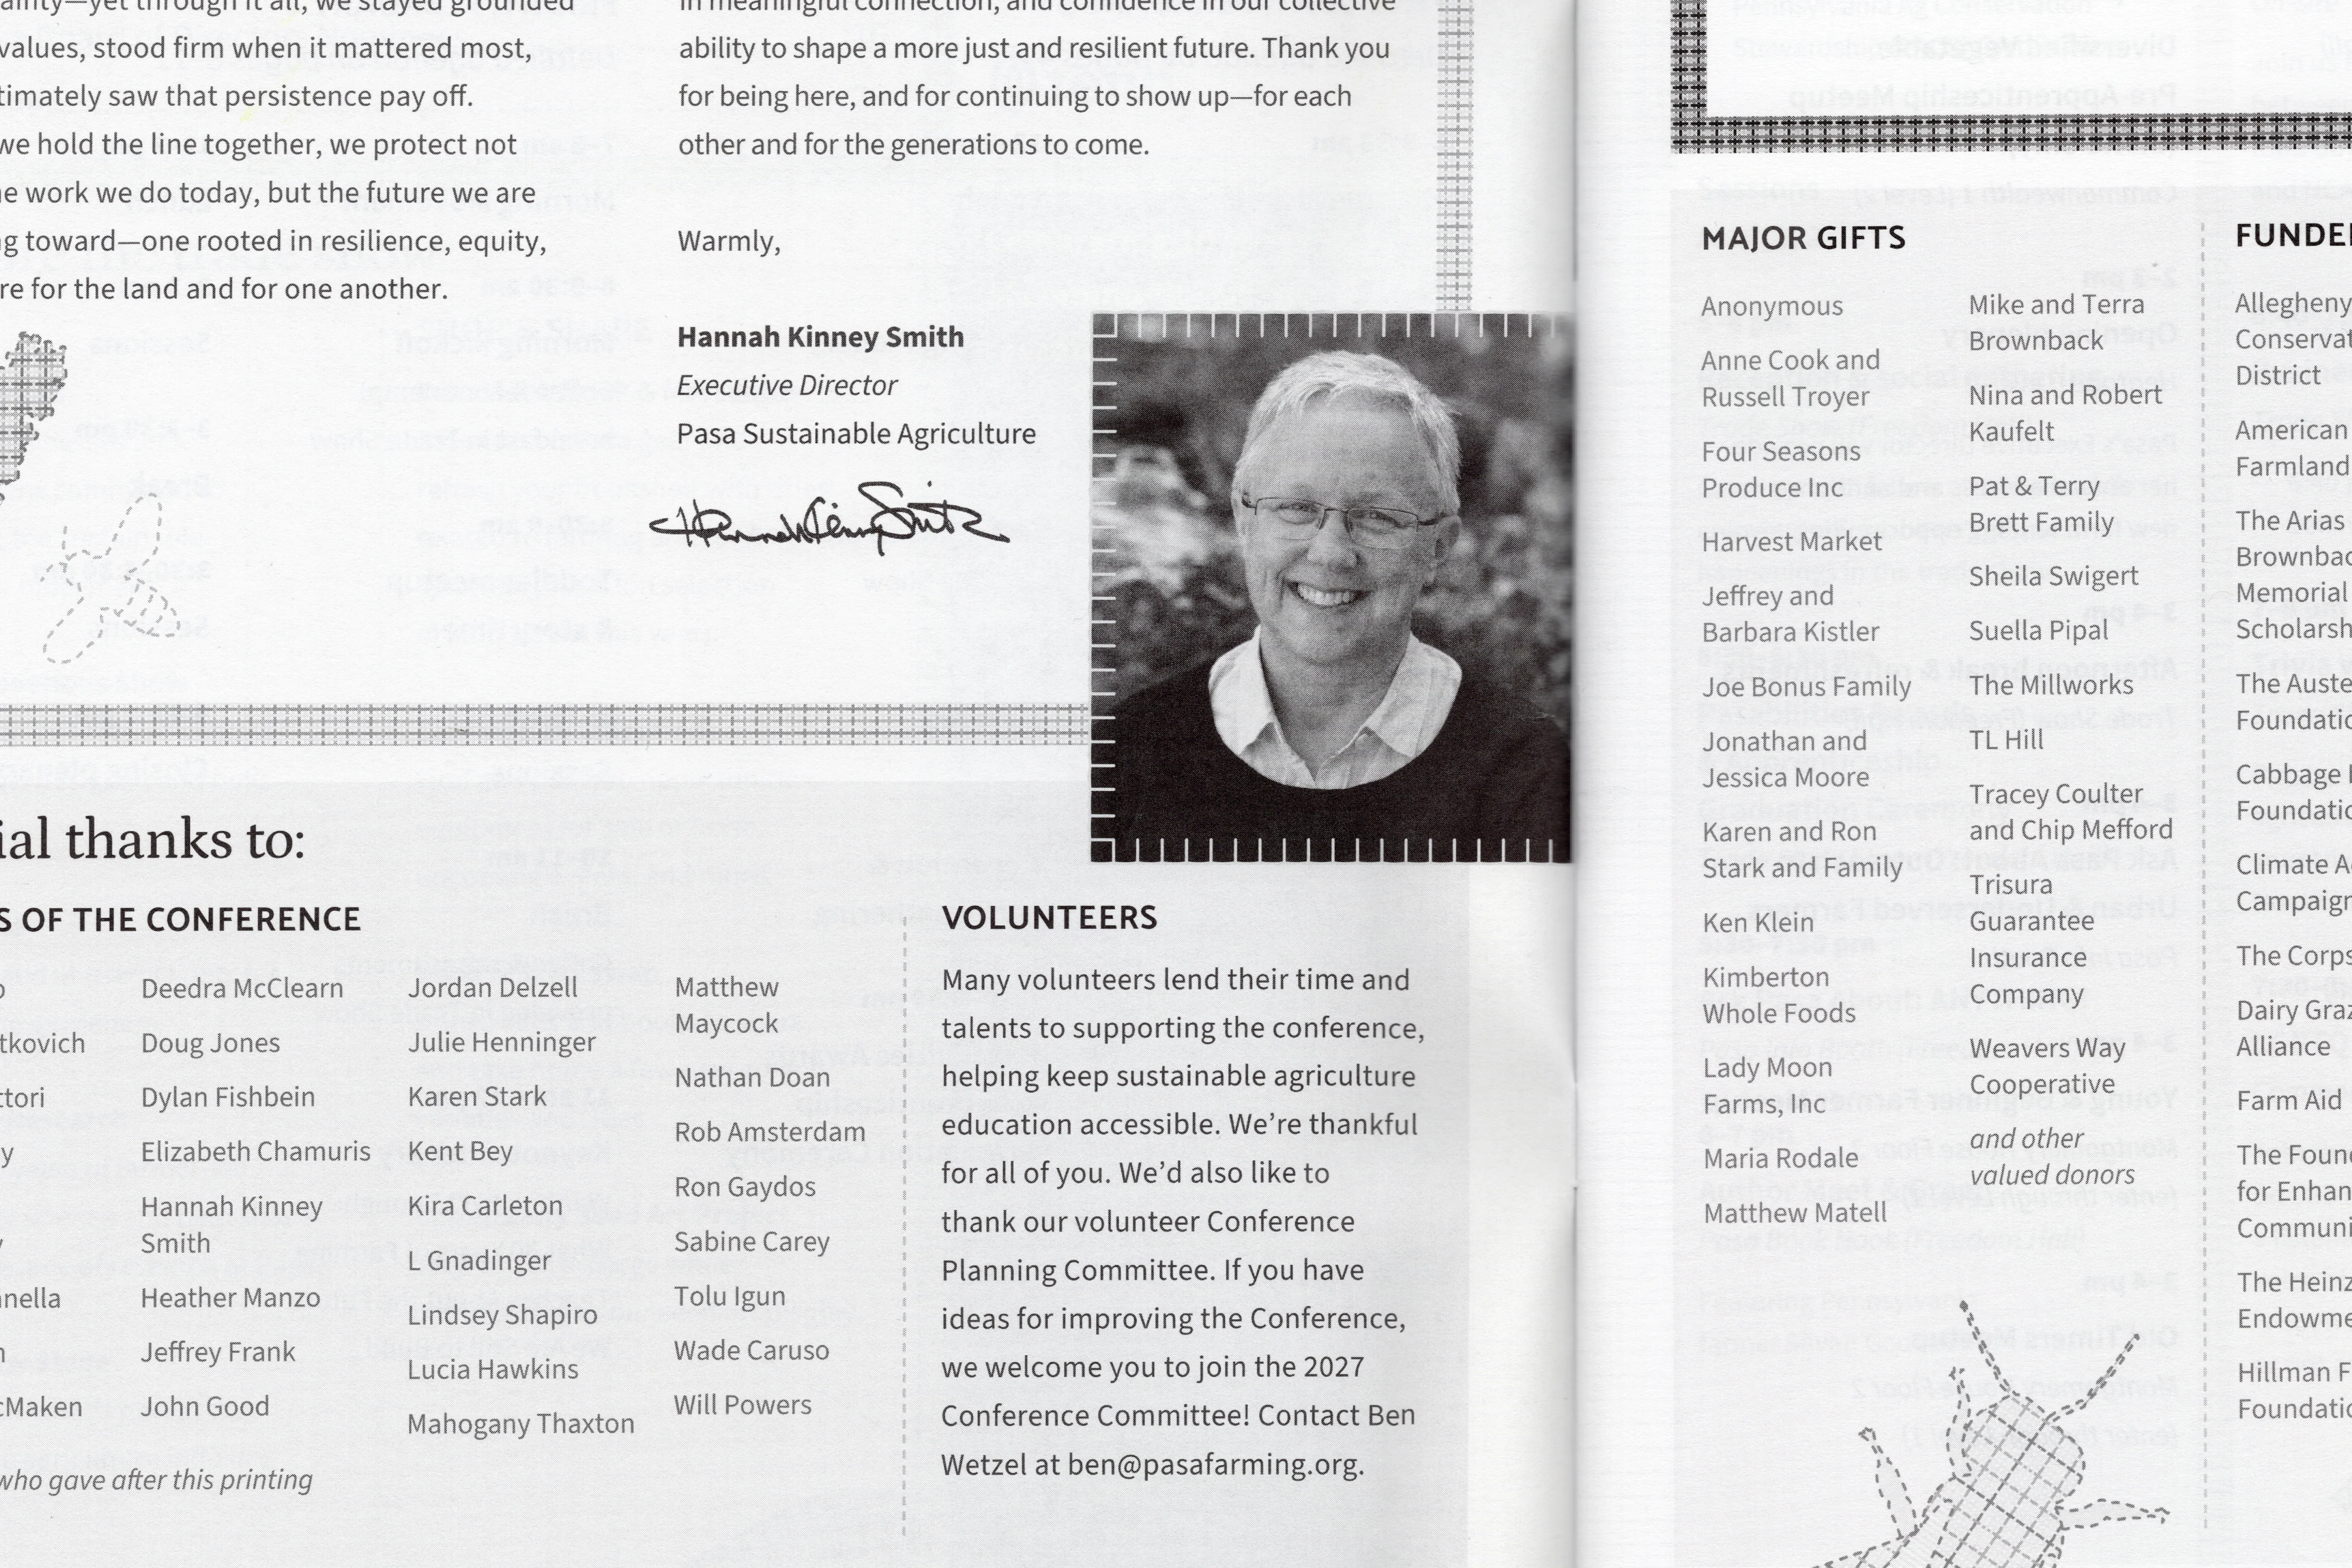 ainty—yet through it all, we stayed grounded
values, stood firm when it mattered most,
timately saw that persistence pay off.
we hold the line together, we protect not
e work we do today, but the future we are
g toward—one rooted in resilience, equity,
re for the land and for one another.
in meaningful connection, and confidence in our collective
ability to shape a more just and resilient future. Thank you
for being here, and for continuing to show up—for each
other and for the generations to come.
Warmly,
Hannah Kinney Smith
Executive Director
Pasa Sustainable Agriculture
Hannah Kinney Smith
ial thanks to:
S OF THE CONFERENCE
o
tkovich
ttori
y
y
nnella
n
cMaken
Deedra McClearn
Doug Jones
Dylan Fishbein
Elizabeth Chamuris
Hannah Kinney
Smith
Heather Manzo
Jeffrey Frank
John Good
Jordan Delzell
Julie Henninger
Karen Stark
Kent Bey
Kira Carleton
L Gnadinger
Lindsey Shapiro
Lucia Hawkins
Mahogany Thaxton
Matthew
Maycock
Nathan Doan
Rob Amsterdam
Ron Gaydos
Sabine Carey
Tolu Igun
Wade Caruso
Will Powers
who gave after this printing
VOLUNTEERS
Many volunteers lend their time and
talents to supporting the conference,
helping keep sustainable agriculture
education accessible. We’re thankful
for all of you. We’d also like to
thank our volunteer Conference
Planning Committee. If you have
ideas for improving the Conference,
we welcome you to join the 2027
Conference Committee! Contact Ben
Wetzel at ben@pasafarming.org.
MAJOR GIFTS
Anonymous
Anne Cook and
Russell Troyer
Four Seasons
Produce Inc
Harvest Market
Jeffrey and
Barbara Kistler
Joe Bonus Family
Jonathan and
Jessica Moore
Karen and Ron
Stark and Family
Ken Klein
Kimberton
Whole Foods
Lady Moon
Farms, Inc
Maria Rodale
Matthew Matell
Mike and Terra
Brownback
Nina and Robert
Kaufelt
Pat & Terry
Brett Family
Sheila Swigert
Suella Pipal
The Millworks
TL Hill
Tracey Coulter
and Chip Mefford
Trisura
Guarantee
Insurance
Company
Weavers Way
Cooperative
and other
valued donors
FUNDE
Allegheny
Conservat
District
American
Farmland
The Arias
Brownbac
Memorial
Scholarsh
The Auste
Foundatio
Cabbage
Foundatio
Climate A
Campaign
The Corps
Dairy Graz
Alliance
Farm Aid
The Foun
for Enhan
Communi
The Heinz
Endowme
Hillman F
Foundatio